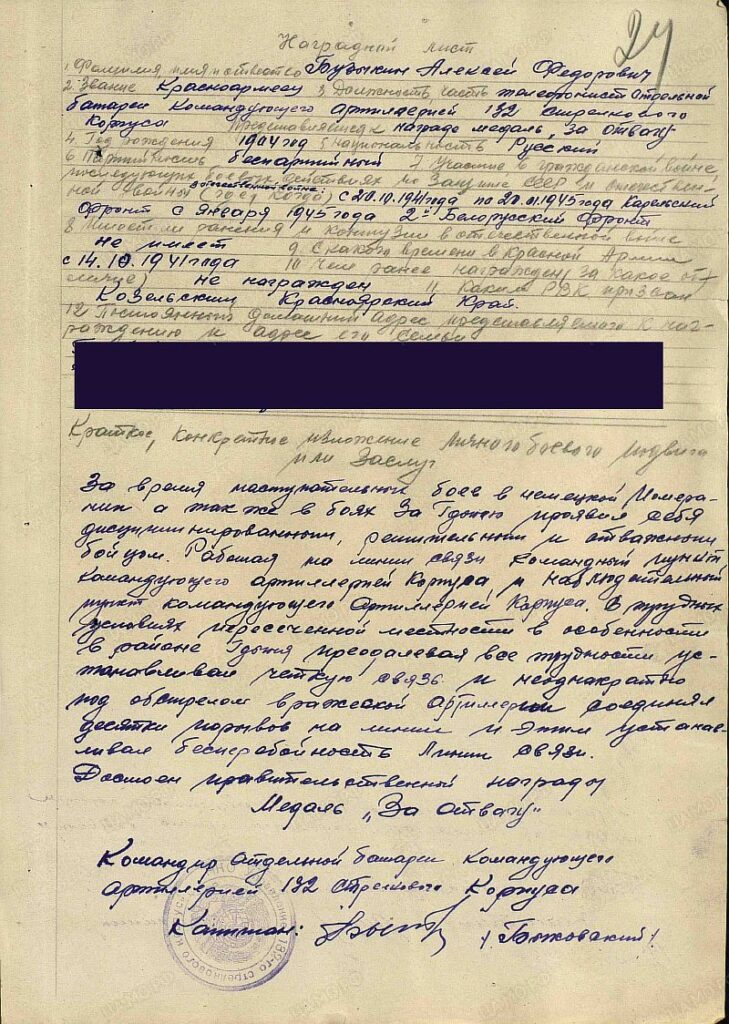 24
Наградной лист
1 Фамилия, имя и отчество Бузыкин Алексей Федорович
2 Звание Красноармеец 3 Должность, часть телефонист Отдельной
батареи Командующего артиллерией 132 стрелкового
Корпуса Представляется к награде медаль „За отвагу
4 Год рождения 1904 год 5 Национальность Русский
6 Партийность беспартийный 7 Участие в гражданской войне,
последующих боевых действиях по защите СССР и отечествен-
ной войны (где, когда) отечественной войне: с 20.10.1941 года по 20.01.1945 года Карельский
фронт с Января 1945 года 2й Белорусский фронт
8 Имеет ли ранения и контузии в отечественной войне
не имеет 9. С какого времени в Красной Армии
с 14.10.1941 года 10 Чем ранее награжден за какое от
личие) не награжден 11 Каким РВК призван
Козельским Красноярский Край.
12 Постоянный домашний адрес представляемого к наг-
раждению и адрес его семьи
Краткое, конкретное изложение личного боевого подвига
или заслуг
За время наступательных боев в немецкой Помера-
нии а так же в боях за Гдыню проявил себя
дисциплинированным, решительным и отважным
бойцом. Работая на линии связи командный пункт
командующего артиллерией Корпуса и наблюдательный
пункт командующего артиллерией Корпуса. В трудных
условиях пересеченной местности в особенности
в районе Гдыня преодалевая все трудности ус-
танавливал четкую связь и неоднакратно
под обстрелом вражеской артилерии соединял
десятки порывов на линии и этим устанав-
ливал бесперебойность линии связи.
Достоен правительственной награды
Медаль „За Отвагу"
Командир отдельной батареи командующего
артилерией 132 стрелкового Корпуса
Капитан: / Быховский /